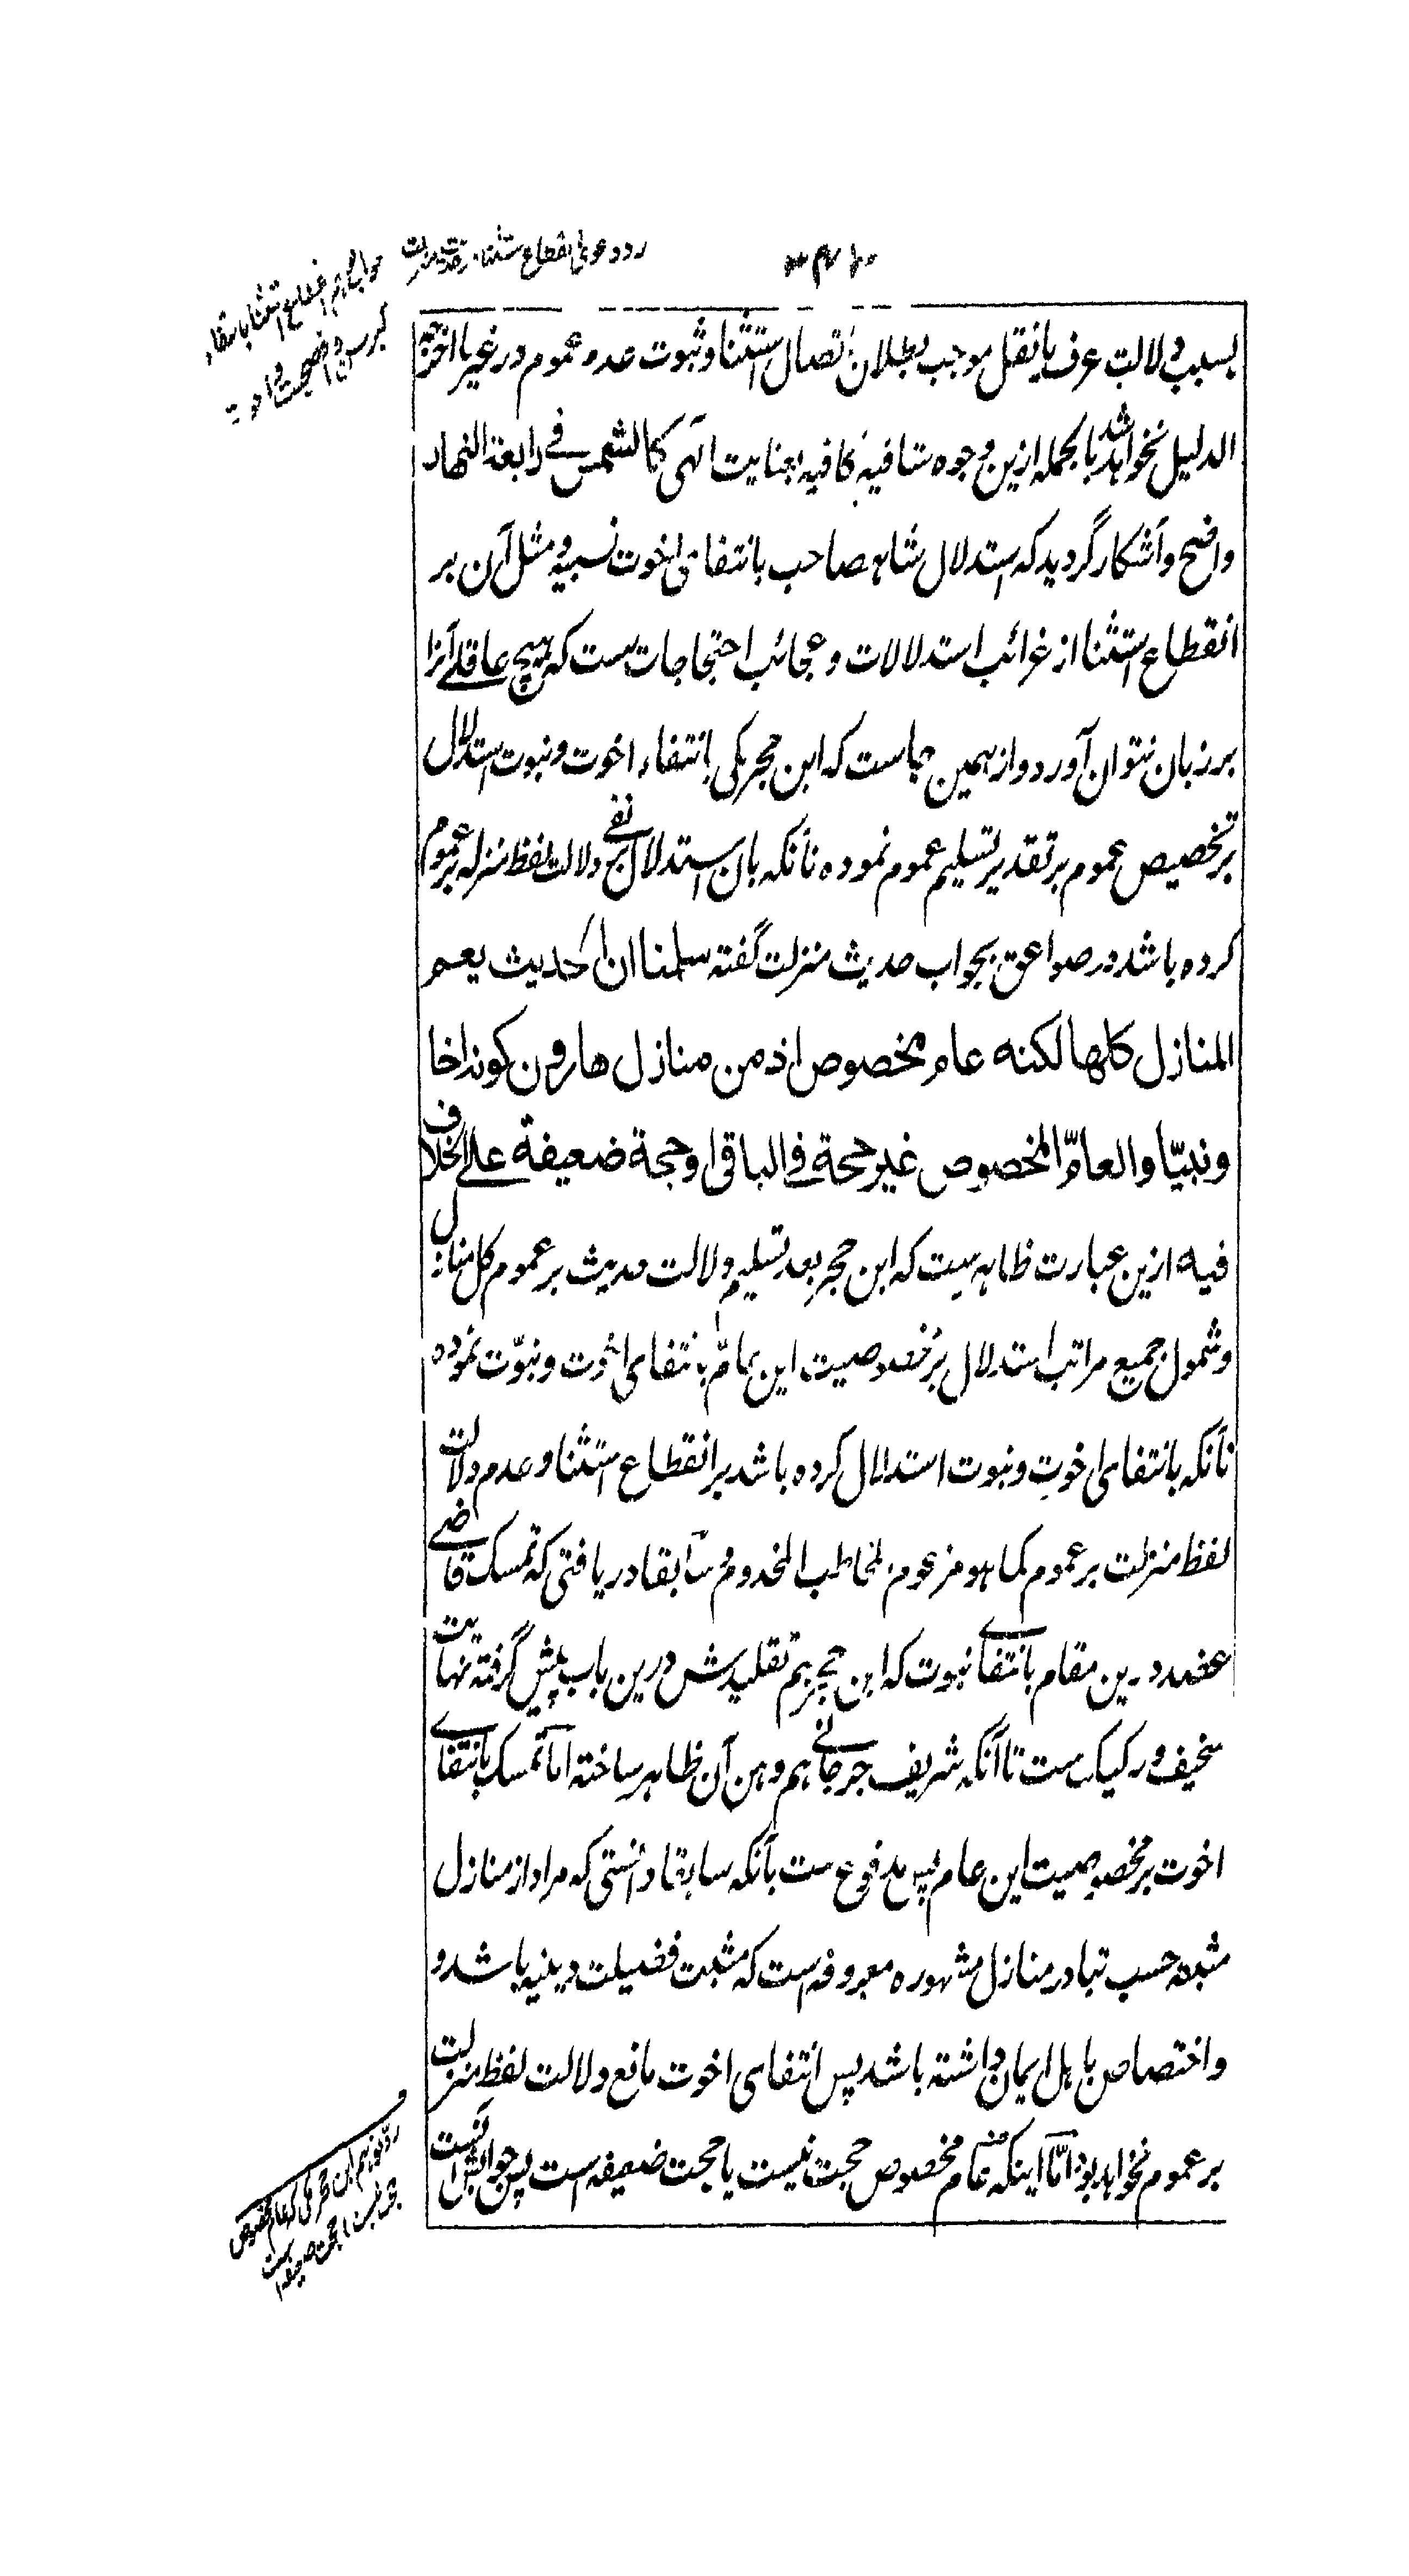 رد دعوی انقطاع استثنا
بسبب دلالت عرف یا نقل موجب بطلان اتصال استثنا و ثبوت عدم عموم در غیر ما اخرجه
الدلیل نخواهد شد بالجمله ازین وجوه شافیه کافیه بعنایت الهی کالشمس فی رابعة النهار
واضح و آشکار گردید که استدلال شاهصاحب بانتفای اخوت نسبیه و مثل آن بر
انقطاع استثنا از غرائب استدلالات و عجائب احتجاجات ست که هیچ عاقلے آنرا
بر زبان نتوان آورد و از همین جاست که ابن حجر مکی بانتفاء اخوت و نبوت استدلال
بر تخصیص عموم بر تقدیر تسلیم عموم نموده نآنکه بان استدلال بر نفی دلالت لفظ منزله بر عموم
کرده باشد در صواعق بجواب حدیث منزلت گفته سلمنا ان الحدیث یعم
المنازل کلها لکنه عام مخصوص اذ من منازل هارون کونه اخا
و نبیّا والعامّ المخصوص غیر حجة فی الباقی او حجة ضعیفة علی الخلاف
فیه ازین عبارت ظاهرست که ابن حجر بعد تسلیم دلالت حدیث بر عموم کل منازل
و شمول جمیع مراتب استدلال بر مخصوصیت این عامّ بانتفای اخوت و نبوّت نموده
نآنکه بانتفای اخوت و نبوت استدلال کرده باشد بر انقطاع استثنا و عدم دلالت
لفظ منزلت بر عموم کما هو مزعوم المخاطب المخدوم و سابقا دریافتی که تمسک قاضے
عضد درین مقام بانتفاے نبوت که ابن حجر هم تقلیدش درین باب پیش گرفته نهایت
سخیف و رکیک ست تا آنکه شریف جرجانے هم وهن آن ظاهر ساخته اما تمسک بانتفاے
اخوت بر مخصوصیت این عام پس مدفوع ست بآنکه سابقا دانستی که مراد از منازل
مثبته حسب تبادر منازل مشهوره معروفه است که مثبت فضیلت دینیه باشد و
و اختصاص باهل ایمان داشته باشد پس انتفای اخوت مانع دلالت لفظ منزلت
بر عموم نخواهد بود امّا اینکه عام مخصوص حجت نیست یا حجت ضعیفه است پس جوابش آنست
رد توهم ابن حجر مکی که عام مخصوص
حجت نیست یا حجت ضعیفه است